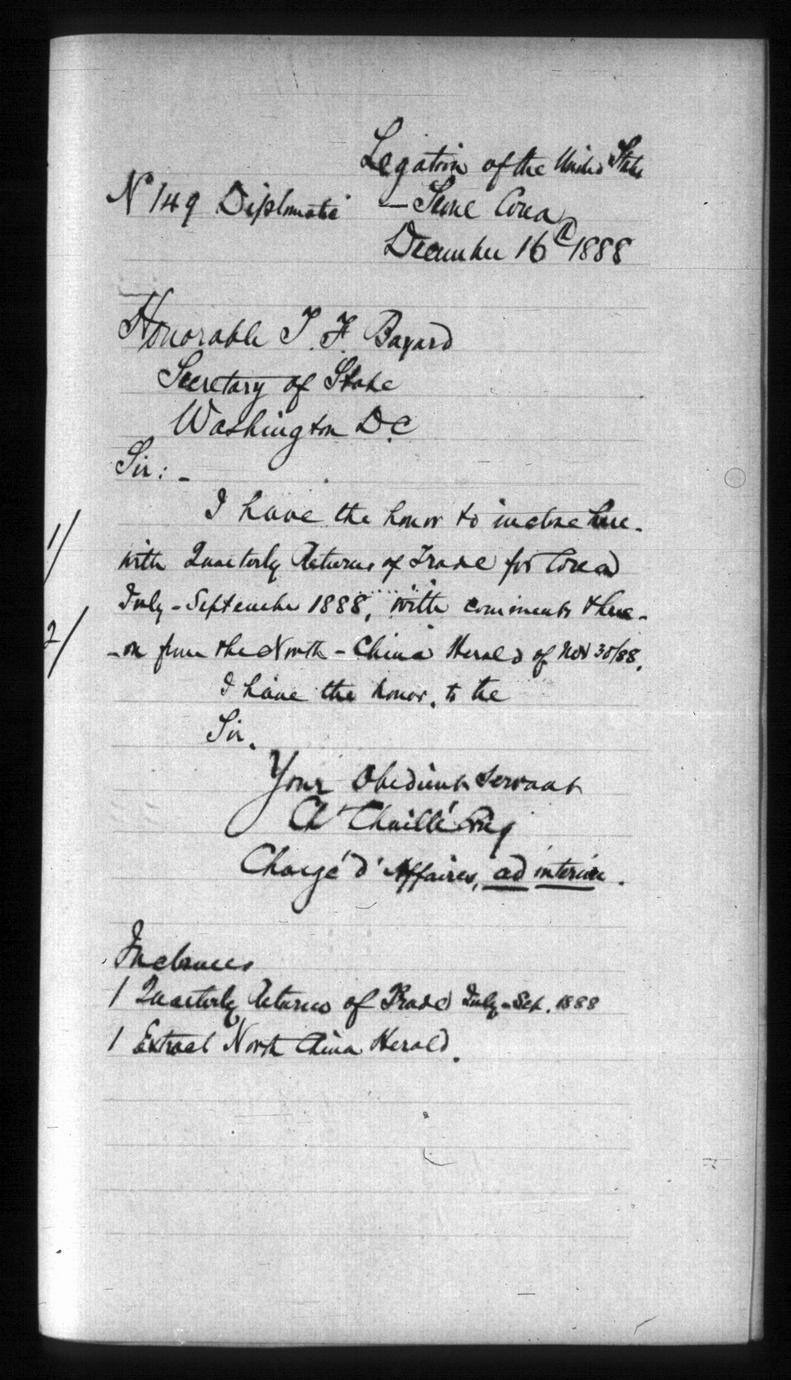 Legation of the United States
Nº 149 Diplomatic — Seoul Corea
December 16th 1888
Honorable T. F. Bayard
Secretary of State
Washington D.C
Sir: -
I have the honor to inclose here-
1/ with Quarterly Returns of Trade for Corea
July - September 1888, with comments there-
2/ -on from the North - China Herald of Nov 30/88.
I have the honor, to be
Sir,
Your Obedient Servant
Ch Chaillé Long
Chargé d'Affaires, ad interim.
Inclosures
1 Quarterly Returns of Trade July - Sep. 1888
1 Extract North China Herald.